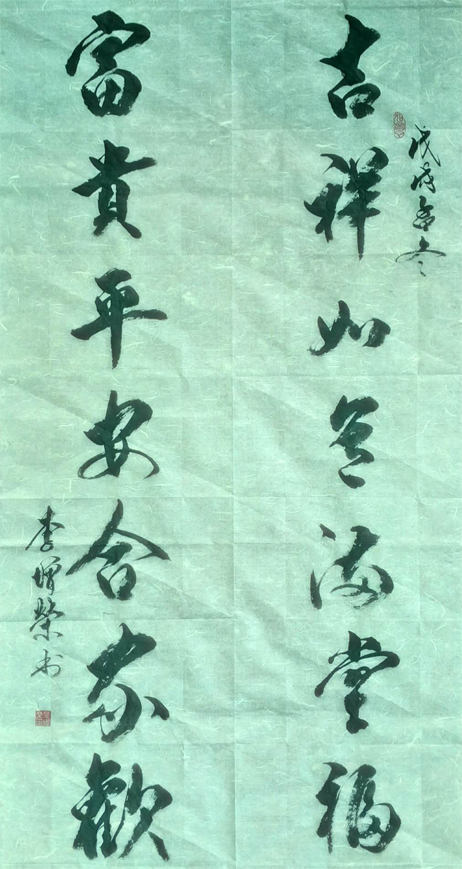 戊戌年冬
吉祥如意滿堂福
富貴平安合家歡
李增榮书